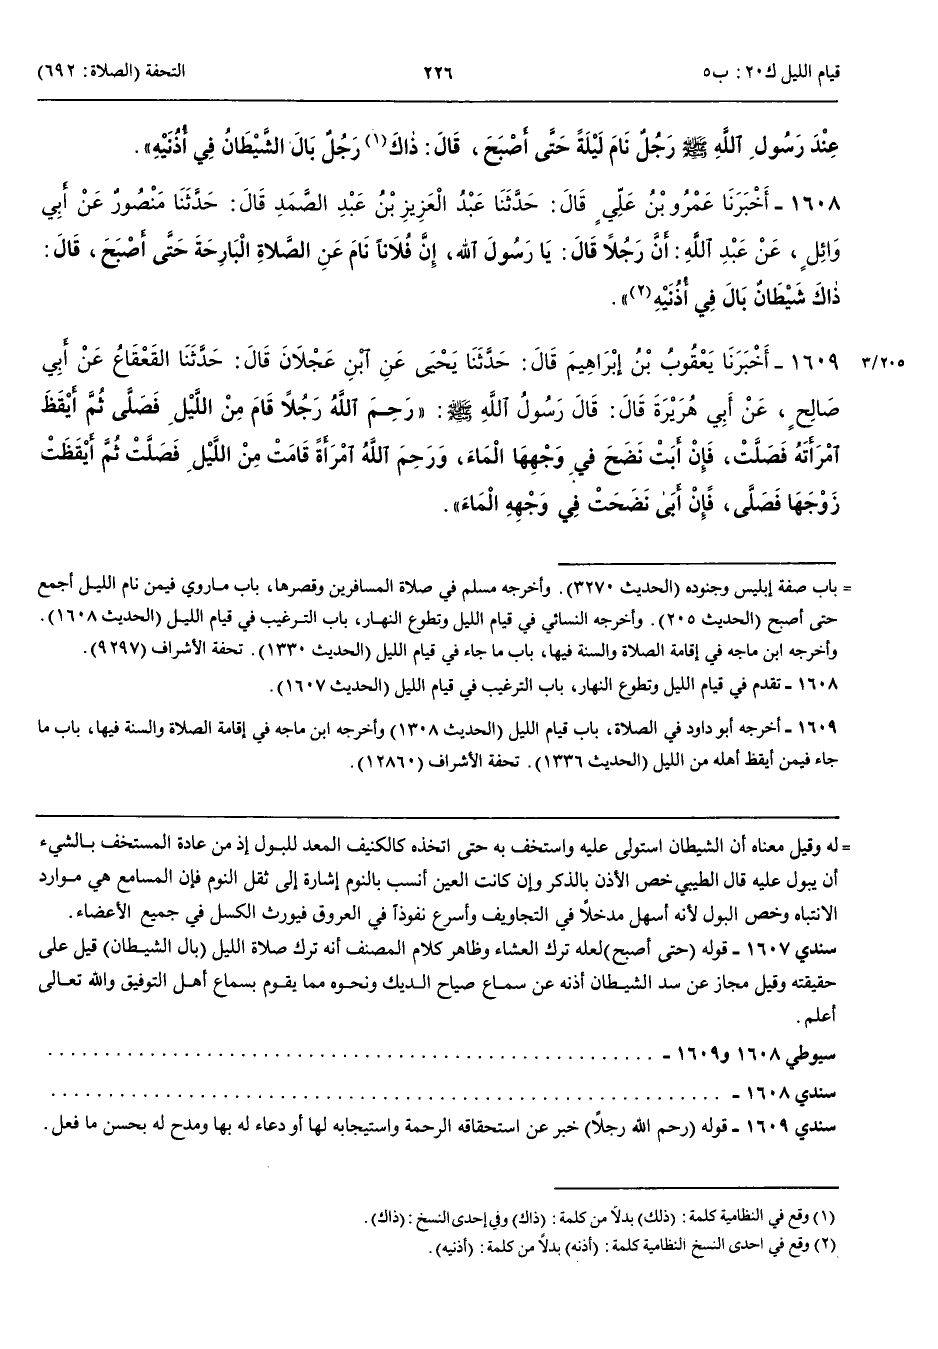 قيام الليل ك٢٠: ب٥ ٢٢٦ التحفة (الصلاة: ٦٩٢)
عِنْدَ رَسُولِ ٱللَّهِ ﷺ رَجُلٌ نَامَ لَيْلَةً حَتَّى أَصْبَحَ، قَالَ: ذٰاكَ(١) رَجُلٌ بَالَ الشَّيْطَانُ فِي أُذُنَيْهِ».
١٦٠٨ ـ أَخْبَرَنَا عَمْرُو بْنُ عَلِّيٍ قَالَ: حَدَّثَنَا عَبْدُ الْعَزِيزِ بْنُ عَبْدِ الصَّمَدِ قَالَ: حَدَّثَنَا مَنْصُورٌ عَنْ أَبِي
وَائِلٍ، عَنْ عَبْدِ ٱللَّهِ: أَنَّ رَجُلاً قَالَ: يَا رَسُولَ الله، إِنَّ فُلَاناً نَامَ عَنِ الصَّلاةِ الْبَارِحَةَ حَتَّى أَصْبَحَ، قَالَ:
ذٰاكَ شَيْطَانٌ بَالَ فِي أُذُنَيْهِ(٢)».
١٦٠٩ ـ أَخْبَرَنَا يَعْقُوبُ بْنُ إِبْرَاهِيمَ قَالَ: حَدَّثَنَا يَحْيَى عَنِ ٱبْنِ عَجْلَانَ قَالَ: حَدَّثَنَا القَعْقَاعُ عَنْ أَبِي ٣/٢٠٥
صَالِحٍ، عَنْ أَبِي هُرَيْرَةَ قَالَ: قَالَ رَسُولُ ٱللَّهِ ﷺ: «رَحِمَ ٱللَّهُ رَجُلًا قَامَ مِنْ اللَّيْلِ فَصَلَّى ثُمَّ أَيْقَظَ
ٱمْرَأَتَهُ فَصَلَّتْ، فَإِنْ أَبَتْ نَضَحَ فِي وَجْهِهَا الْمَاءَ، وَرَحِمَ ٱللَّهُ ٱمْرَأَةً قَامَتْ مِنْ اللَّيْلِ فَصَلَّتْ ثُمَّ أَيْقَظَتْ
زَوْجَهَا فَصَلَّى، فَإِنْ أَبَىٰ نَضَحَتْ فِي وَجْهِهِ الْمَاءَ».
= باب صفة إبليس وجنوده (الحديث ٣٢٧٠). وأخرجه مسلم في صلاة المسافرين وقصرها، باب ماروي فيمن نام الليل أجمع
حتى أصبح (الحديث ٢٠٥). وأخرجه النسائي في قيام الليل وتطوع النهار، باب الترغيب في قيام الليل (الحديث ١٦٠٨).
وأخرجه ابن ماجه في إقامة الصلاة والسنة فيها، باب ما جاء في قيام الليل (الحديث ١٣٣٠). تحفة الأشراف (٩٢٩٧).
١٦٠٨ ـ تقدم في قيام الليل وتطوع النهار، باب الترغيب في قيام الليل (الحديث ١٦٠٧).
١٦٠٩ ـ أخرجه أبو داود في الصلاة، باب قيام الليل (الحديث ١٣٠٨) وأخرجه ابن ماجه في إقامة الصلاة والسنة فيها، باب ما
جاء فيمن أيقظ أهله من الليل (الحديث ١٣٣٦). تحفة الأشراف (١٢٨٦٠).
= له وقيل معناه أن الشيطان استولى عليه واستخف به حتى اتخذه كالكنيف المعد للبول إذ من عادة المستخف بالشيء
أن يبول عليه قال الطيبي خص الأذن بالذكر وإن كانت العين أنسب بالنوم إشارة إلى ثقل النوم فإن المسامع هي موارد
الانتباه وخص البول لأنه أسهل مدخلاً في التجاويف وأسرع نفوذاً في العروق فيورث الكسل في جميع الأعضاء.
سندي ١٦٠٧ ـ قوله (حتى أصبح)لعله ترك العشاء وظاهر كلام المصنف أنه ترك صلاة الليل (بال الشيطان) قيل على
حقيقته وقيل مجاز عن سد الشيطان أذنه عن سماع صياح الديك ونحوه مما يقوم بسماع أهل التوفيق والله تعالى
أعلم.
سيوطي ١٦٠٨ و١٦٠٩ ـ ........................................
سندي ١٦٠٨ ـ ........................................
سندي ١٦٠٩ ـ قوله (رحم الله رجلاً) خبر عن استحقاقه الرحمة واستيجابه لها أو دعاء له بها ومدح له بحسن ما فعل.
(١) وقع في النظامية كلمة: (ذلك) بدلاً من كلمة: (ذاك) وفي إحدى النسخ: (ذاك).
(٢) وقع في احدى النسخ النظامية كلمة: (أذنه) بدلاً من كلمة: (أذنيه).